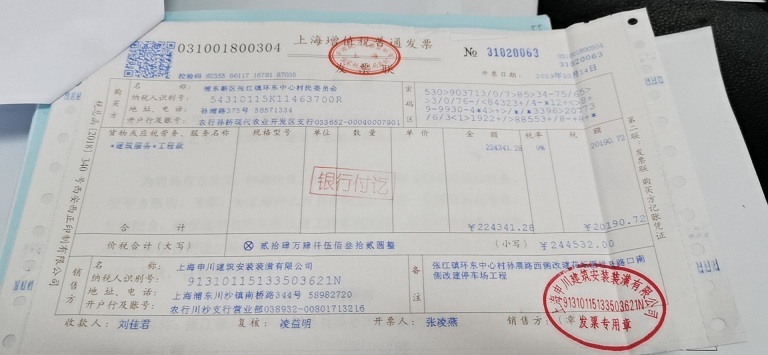 031001800304
上海增值税普通发票
发票联
№ 31020063
31020063
校验码 62355 66117 16781 87035
开票日期: 2019年10月14日
购买方
名 称: 浦东新区张江镇环东中心村民委员会
纳税人识别号: 54310115K11463700R
地 址、电 话: 孙桥路375号 58571334
开户行及账号: 农行孙桥现代农业开发区支行033652-00040007901
密码区
货物及应税劳务、服务名称 规格型号 单位 数量 单价 金额 税率 税额
*建筑服务*工程款 224341.28 9% 20190.72
银行付讫
合计 ¥224341.28 ¥20190.72
价税合计(大写) ⊗ 贰拾肆万肆仟伍佰叁拾贰圆整 (小写) ¥244532.00
销售方
名 称: 上海申川建筑安装装潢有限公司
纳税人识别号: 91310115133503621N
地 址、电 话: 上海浦东川沙镇南桥路344号 58982720
开户行及账号: 农行川沙支行营业部038932-00801713216
备注
张江镇环东中心村孙
路口南
侧改建停车场工程
收款人: 刘佳君 复核: 凌益明 开票人: 张凌燕 销售方: (章
上海申川建筑安装装潢有限公司
91310115133503621N
发票专用章
第二联:发票联 购买方记账凭证